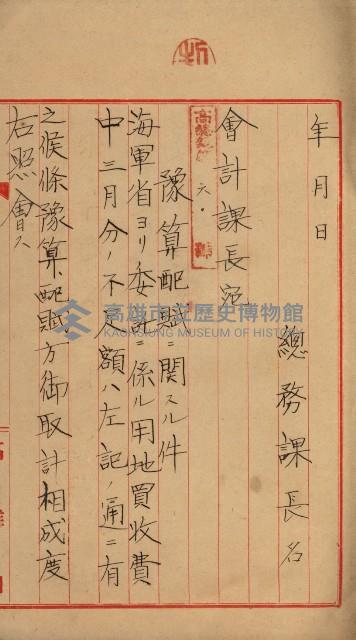 年月日
總務課長名
會計課長宛
豫算配賦ニ関スル件
海軍省ヨリ委託ニ係ル用地買收費
中三月分ノ不足額ハ左記ノ通ニ有
之候條豫算配賦方御取計相成度
右照會ス
高雄市立歷史博物館
KAOHSIUNG MUSEUM OF HISTORY